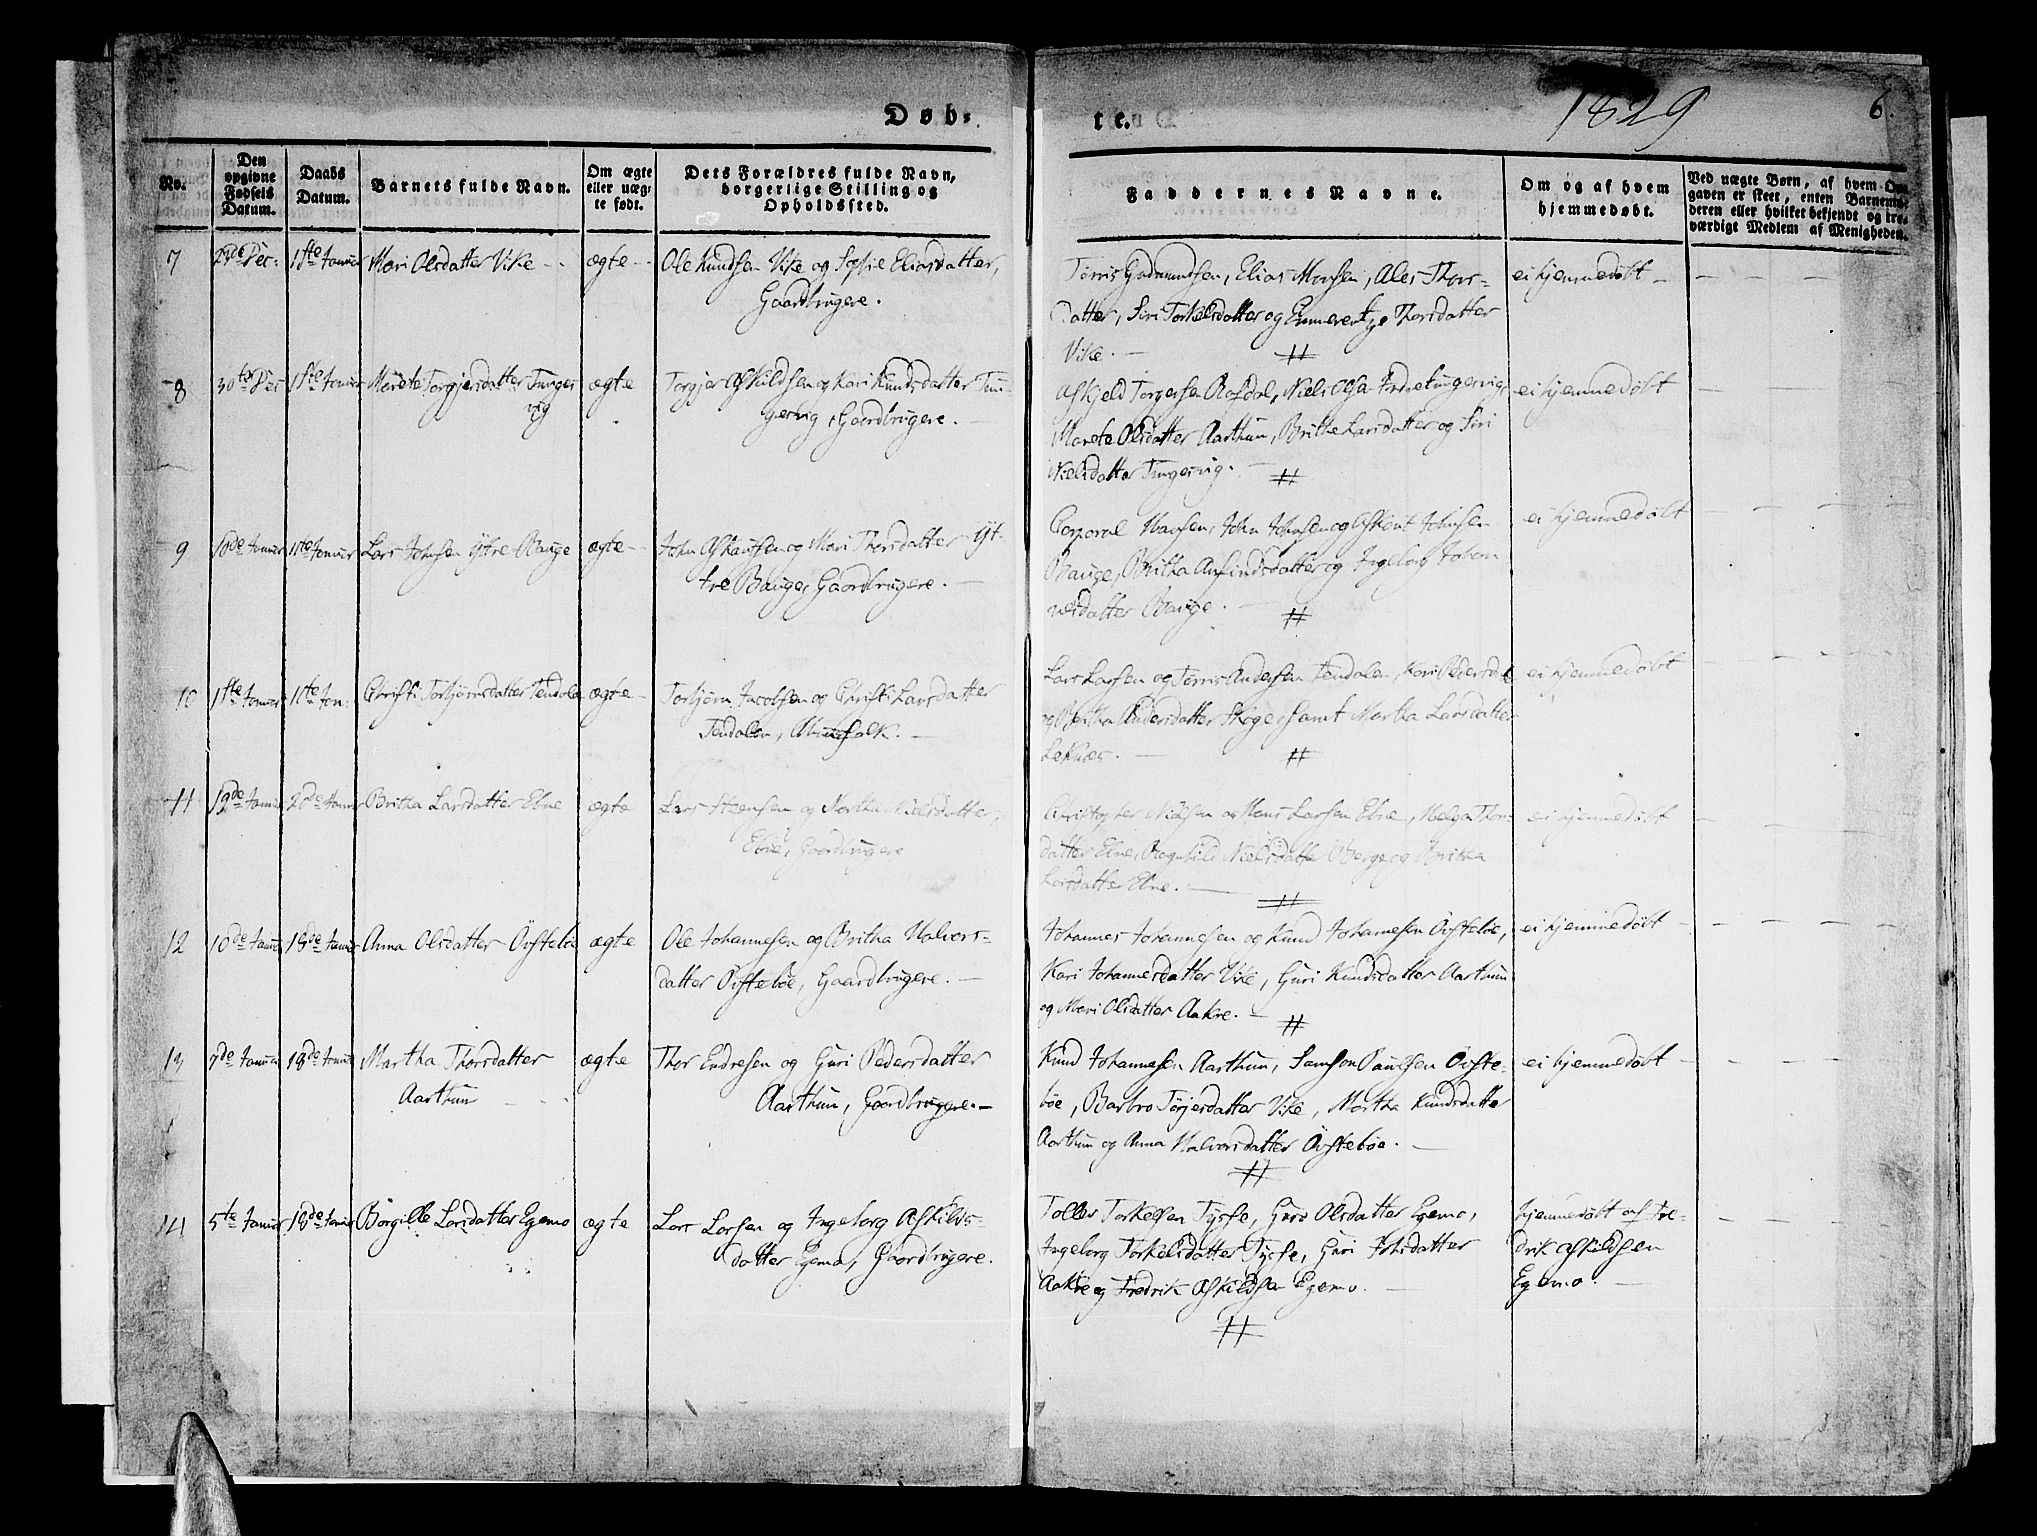 Døb-
te.
1829
6.
No.
Den
opgivne
Fødsels
Datum.
Daabs
Datum.
Barnets fulde Navn.
Om ægte
eller uæg-
te født.
Dets Forældres fulde Navn,
borgerlige Stilling og
Opholdssted.
Faddernes Navne.
Om og af hvem
hjemmedøbt.
Ved uægte Børn, af hvem Op-
gaven er skeet, enten Barnemo-
deren eller hvilket bekjendt og tro-
værdigt Medlem af Menigheden.
7
Dec:
1ste Januar
Mari Olsdatter Vike
ægte
Ole Knudsen Vike og Sofie Eliasdatter,
Gaardbrugere.
Tørris Gudmundsen, Elias Monsen, Ales Thors-
datter, Siri Torkelsdatter og Emerentze Thorsdatter
Vike.
ei hjemmedøbt
8
30te Dec
1ste Januar
Merete Torgjersdatter Tunges
vig
ægte
Torgjer Askildsen og Kari Knudsdatter Tun-
gesvig, Gaardbrugere.
Askjeld Torgersen Rafdal, Niels Olsen Indretungesvig,
Marete Olsdatter Aarthun, Britha Larsdatter og Siri
Nielsdatter Tungesvig.
ei hjemmedøbt
9
10de Januar
11te Januar
Lars Johnsen Ytre Bauge
ægte
John Askautsen og Mari Thorsdatter Yt-
tre Bauge, Gaardbrugere.
Corporal Hansen, John Johnsen og Askaut Johnsen
Bauge, Britha Anfindsdatter og Ingeborg Johan-
nesdatter Bauge.
ei hjemmedøbt
10
1ste Januar
11te Jan:
Christi Torbjørnsdatter Tendalen
ægte
Torbjørn Jacobsen og Christi Larsdatter
Tendalen, Huusfolk.
Lars Larsen og Tørris Andersen Tendalen, Kari Pedersdat
og Britha Andersdatter Skoge samt Martha Larsdatter
Leknes.
ei hjemmedøbt
11
Januar
Januar
Britha Larsdatter Ebne
ægte
Lars Steensen og Martha Nielsdatter,
Ebne, Gaardbrugere
Christopher Nielsen og Hans Larsen Ebne, Helga Thors-
datter Ebne, Ragnhild Nielsdatter Berge og Britha
Larsdatter Ebne.
ei hjemmedøbt
12
10de Januar
18de Januar
Anna Olsdatter Øvstebøe
ægte
Ole Johannesen og Britha Halvors-
datter Øvstebøe, Gaardbrugere.
Johannes Johannesen og Knud Johannesen Øvstebøe,
Kari Johannesdatter Vike, Guri Knudsdatter Aarthun
og Mari Olsdatter Aakre.
ei hjemmedøbt
13
7de Januar
18de Januar
Martha Thorsdatter
Aarthun
ægte
Thor Endresen og Guri Pedersdatter
Aarthun, Gaardbrugere.
Knud Johannesen Aarthun, Samson Paulsen Øvste-
bøe, Barbro Tørjersdatter Vike, Martha Knudsdatter
Aarthun og Anna Halvorsdatter Øvstebøe.
ei hjemmedøbt
14
5te Januar
18de Januar
Borgille Larsdatter Egemo
ægte
Lars Larsen og Ingeborg Askilds-
datter Egemo, Gaardbrugere.
Tollev Torkelsen Tysse, Guro Olsdatter Egemo,
Ingeborg Torkelsdatter Tysse, Guri Johsdatter
Aakre og Fredrik Askildsen Egemo.
hjemmedøbt af Fre-
drik Askildsen
Egemo.